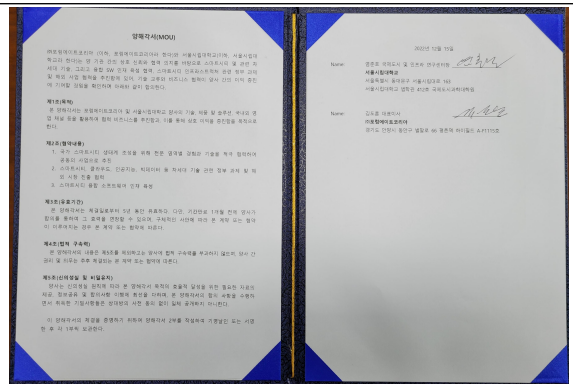 양해각서(MOU)
㈜포럼에이트코리아 (이하, 포럼에이트코리아라 한다)와 서울시립대학교(이하, 서울시립대
학교라 한다)는 양 기관 간의 상호 신뢰와 협력 의지를 바탕으로 스마트시티 및 관련 차
세대 기술, 그리고 융합 SW 인재 육성 협력, 스마트시티 인프라스트럭처 관련 정부 과제
및 해외 사업 협력을 추진함에 있어, 기술 교류와 비즈니스 협력이 양사 간의 이익 증진
에 기여할 것임을 확인하며 아래와 같이 합의한다.
제1조(목적)
본 양해각서는 포럼에이트코리아 및 서울시립대학교 양사의 기술, 제품 및 솔루션, 국내외 영
업 채널 등을 활용하여 협력 비즈니스를 추진함과, 이를 통해 상호 이익을 증진함을 목적으로
한다.
제2조(협약내용)
1. 국가 스마트시티 생태계 조성을 위해 전문 영역별 경험과 기술을 적극 협력하여
공동의 사업으로 추진
2. 스마트시티, 클라우드, 인공지능, 빅데이터 등 차세대 기술 관련 정부 과제 및 해
외 시장 진출 협력
3. 스마트시티 융합 소프트웨어 인재 육성
제3조(유효기간)
본 양해각서는 체결일로부터 3년 동안 유효하다. 다만, 기간만료 1개월 전에 양사가
합의를 통하여 그 효력을 연장할 수 있으며, 구체적인 사안에 따라 본 계약 또는 협약
이 이루어지는 경우 본 계약 또는 협약에 따른다.
제4조(법적 구속력)
본 양해각서의 내용은 제5조를 제외하고는 양사에 법적 구속력을 부과하지 않으며, 양사 간
권리 및 의무는 추후 체결되는 본 계약 또는 협약에 따른다.
제5조(신의성실 및 비밀유지)
양사는 신의성실 원칙에 따라 본 양해각서 목적의 효율적 달성을 위한 필요한 자료의
제공, 정보공유 및 합의사항 이행에 최선을 다하며, 본 양해각서의 협의 사항을 수행하
면서 취득한 기밀사항들은 상대방의 사전 동의 없이 일체 공개하지 아니한다.
이 양해각서의 체결을 증명하기 위하여 양해각서 2부를 작성하여 기명날인 또는 서명
한 후 각 1부씩 보관한다.
2022년 12월 15일
Name:
서울시립대학교
서울특별시 동대문구 서울시립대로 163,
Name: 김도훈 대표이사
㈜포럼에이트코리아